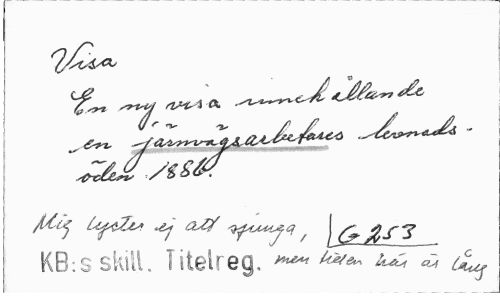 Visa
En ny visa innehållande
en järnvägsarbetares levnads-
öden. 1886.
Mig lyster ej att sjunga, G 253
KB:s skill. Titelreg. men tiden här är lång